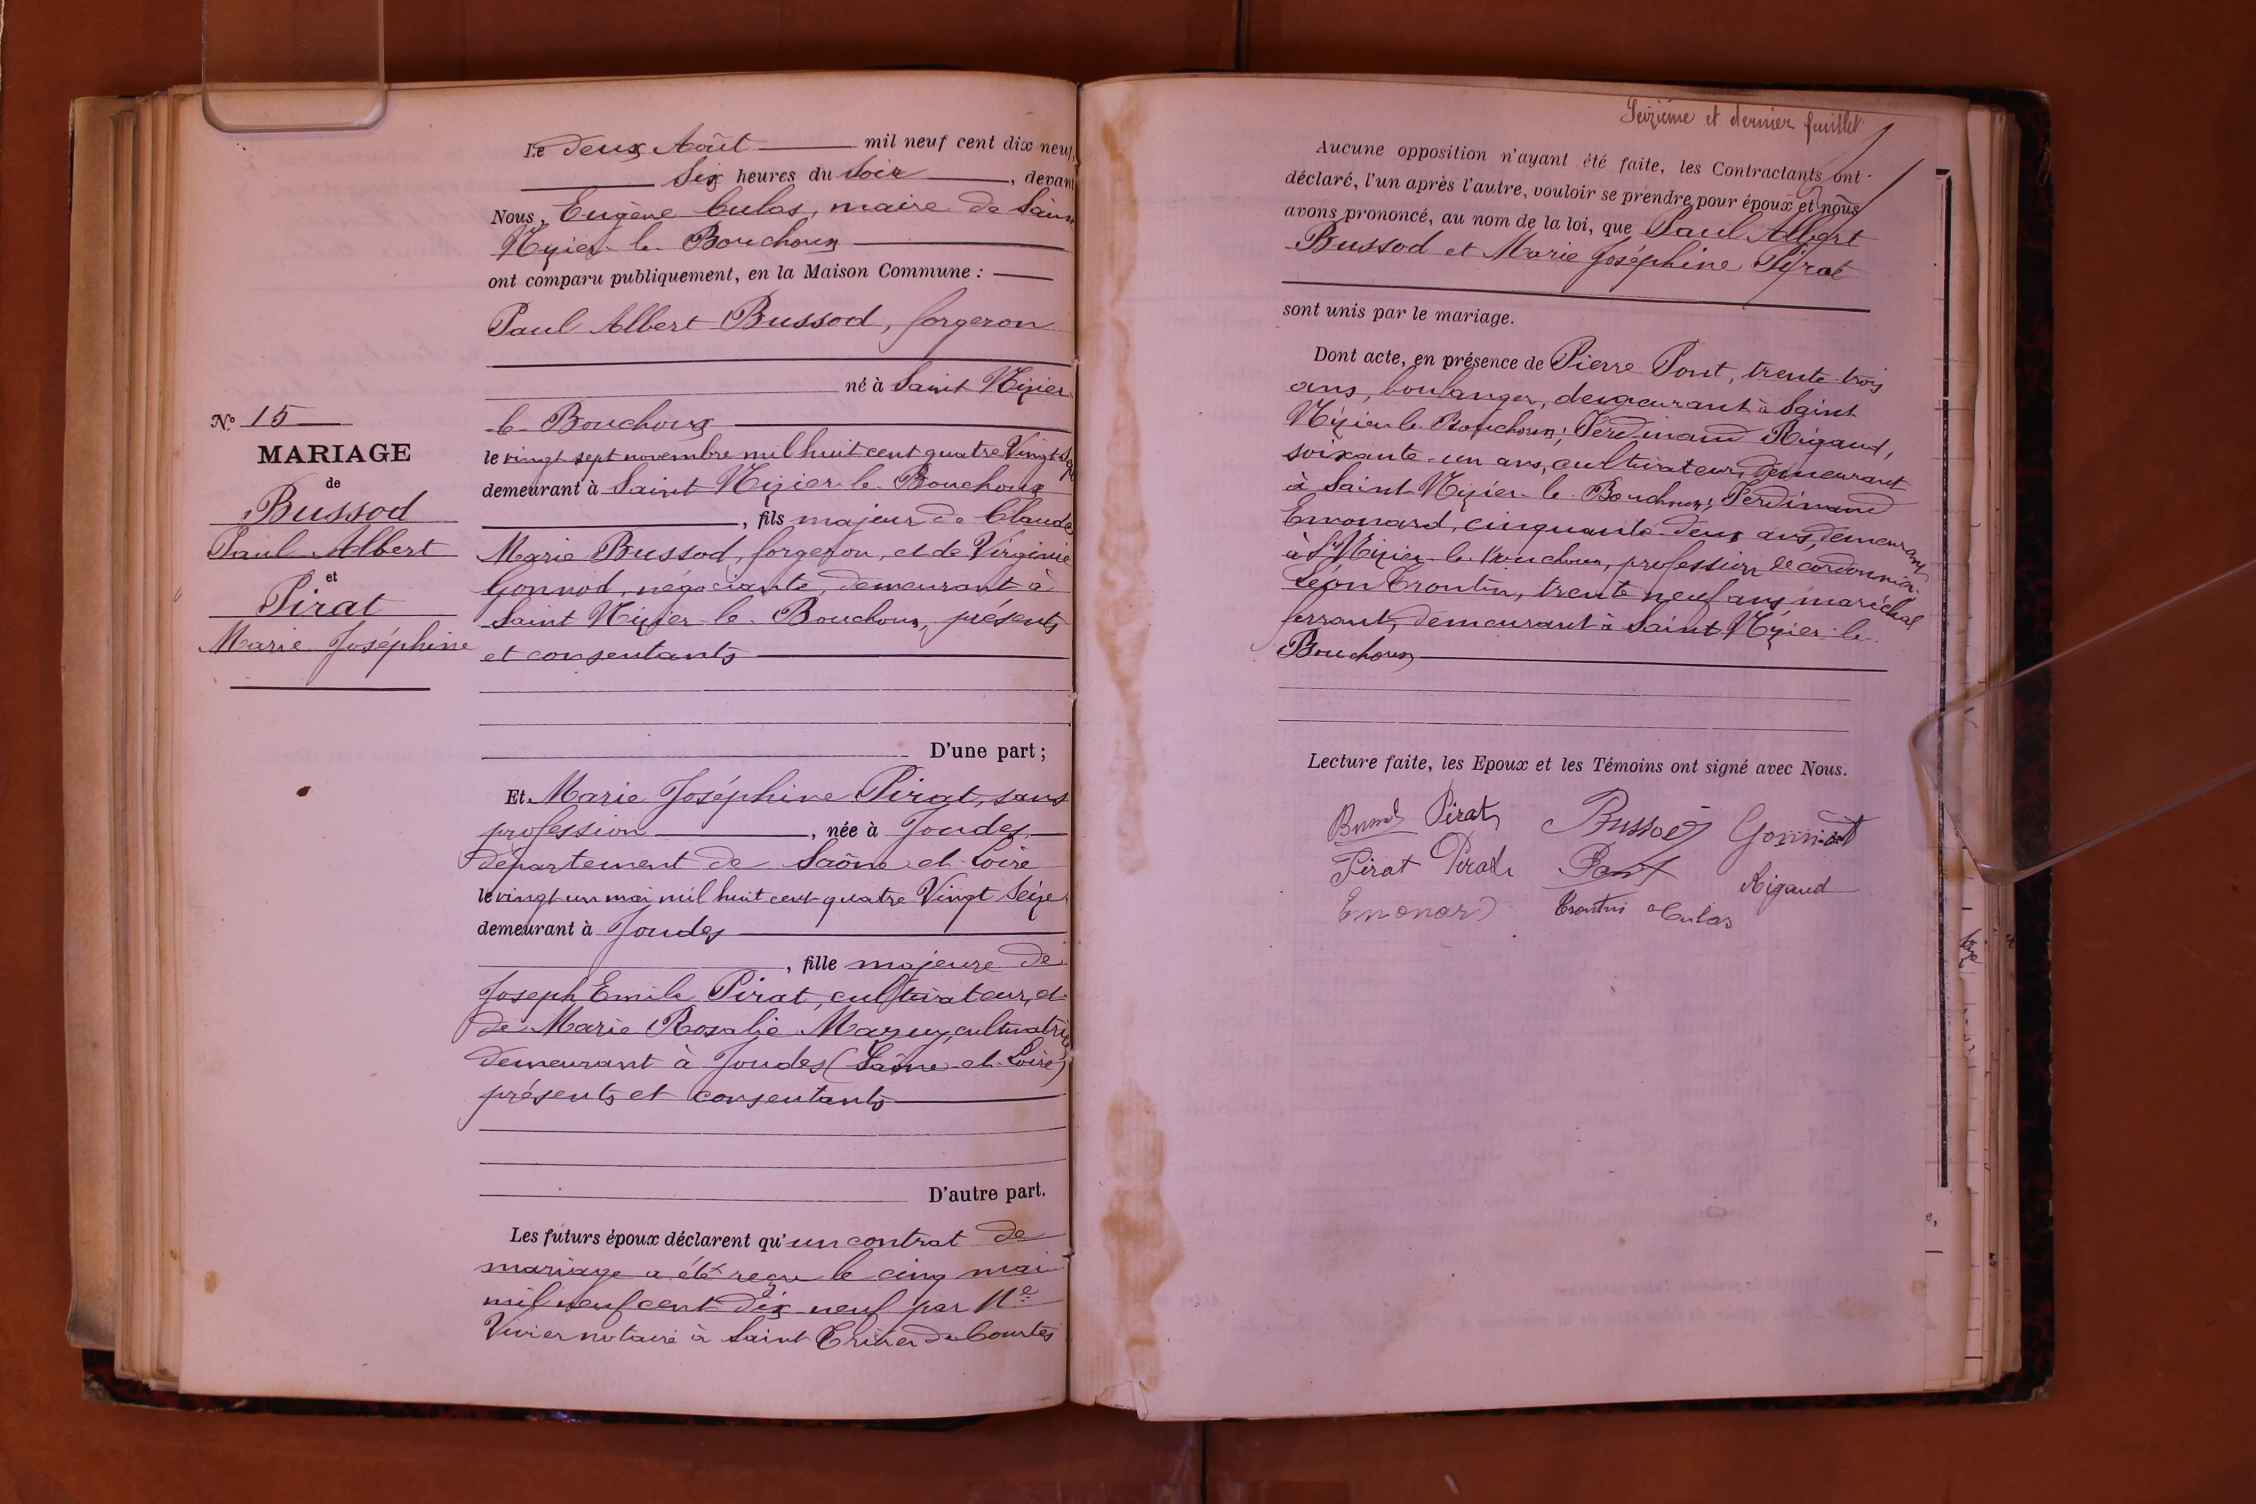 N° 15
MARIAGE
de
Bussod
Paul Albert
et
Pirat
Marie Joséphine
Le deux Août mil neuf cent dix neuf,
six heures du soir, devant
Nous, Eugène Culas, maire de Saint
Nizier le Bouchoux
ont comparu publiquement, en la Maison Commune :
Paul Albert Bussod, forgeron
né à Saint Nizier
le Bouchoux
le vingt sept novembre mil huit cent quatre Vingt
demeurant à Saint Nizier le Bouchoux
, fils majeur de Claude
Marie Bussod, forgeron, et de Virginie
Gonnod, négociante, demeurant à
Saint Nizier le Bouchoux, présents
et consentants
D'une part ;
Et Marie Joséphine Pirat, sans
profession, née à Joudes
département de Saône et Loire
le vingt un mai mil huit cent quatre Vingt seize
demeurant à Joudes
, fille majeure de
Joseph Emile Pirat, cultivateur, et
de Marie Rosalie Mazuy, cultivatrice
demeurant à Joudes (Saône et Loire)
présents et consentants
D'autre part.
Les futurs époux déclarent qu'un contrat de
mariage a été reçu le cinq mai
mil neuf cent dix neuf par Me
Vivier notaire à Saint Trivier de Courtes
Seizième et dernier feuillet
Aucune opposition n'ayant été faite, les Contractants ont
déclaré, l'un après l'autre, vouloir se prendre pour époux et nous
avons prononcé, au nom de la loi, que Paul Albert
Bussod et Marie Joséphine Pirat
sont unis par le mariage.
Dont acte, en présence de Pierre Pont, trente trois
ans, boulanger, demeurant à Saint
Nizier le Bouchoux; Ferdinand Rigaud,
soixante un ans, cultivateur, demeurant
à Saint Nizier le Bouchoux; Ferdinand
Emonard, cinquante deux ans, demeurant
à St Nizier le Bouchoux, profession de cordonnier.
Léon Trontin, trente neuf ans, maréchal
ferrant, demeurant à Saint Nizier le
Bouchoux
Lecture faite, les Epoux et les Témoins ont signé avec Nous.
Bussod Pirat Bussod Gonnod
Pirat Pirat Pont Rigaud
Emonard Trontin Culas